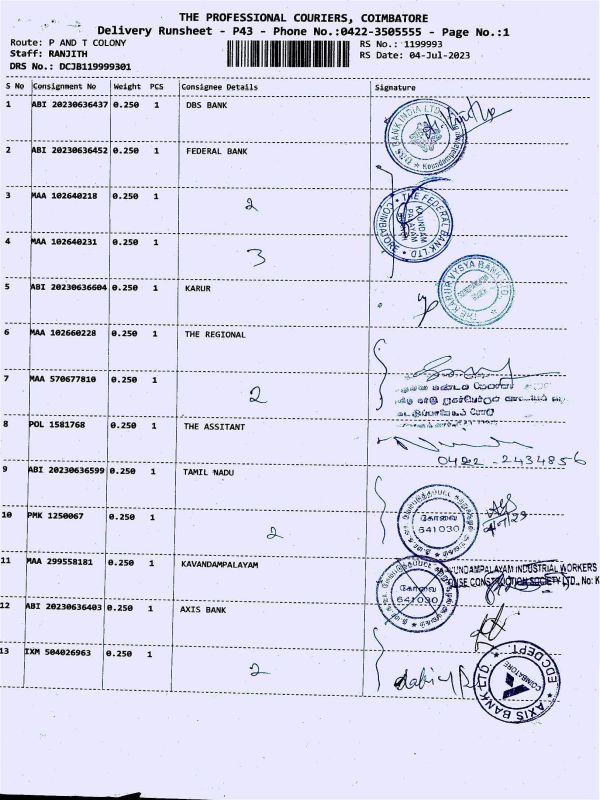 THE PROFESSIONAL COURIERS, COIMBATORE
Delivery Runsheet - P43 - Phone No.:0422-3505555 - Page No.:1
Route: P AND T COLONY RS No.: 1199993
Staff: RANJITH RS Date: 04-Jul-2023
DRS No.: DCJB119999301
S No Consignment No Weight PCS Consignee Details Signature
1 ABI 20230636437 0.250 1 DBS BANK
DBS BANK INDIA LTD
2 ABI 20230636452 0.250 1 FEDERAL BANK
3 MAA 102640218 0.250 1 2
THE FEDERAL BANK LTD
KAUNDAM
PALAYAM
COIMBATORE
4 MAA 102640231 0.250 1 3
5 ABI 20230636604 0.250 1 KARUR
THE KARUR VYSYA BANK LTD.
6 MAA 102660228 0.250 1 THE REGIONAL
7 MAA 570677810 0.250 1 2
8 POL 1581768 0.250 1 THE ASSITANT
0422-2434856
9 ABI 20230636599 0.250 1 TAMIL NADU
10 PMK 1250067 0.250 1 2
கோவை
641030
11 MAA 299558181 0.250 1 KAVANDAMPALAYAM
KAVUNDAMPALAYAM INDUSTRIAL WORKERS
HOUSE CONSTRUCTION SOCIETY LTD., No: K
கோவை
641030
12 ABI 20230636403 0.250 1 AXIS BANK
13 IXM 504026963 0.250 1 2
EDC DEPT.
COIMBATORE
AXIS BANK LTD.